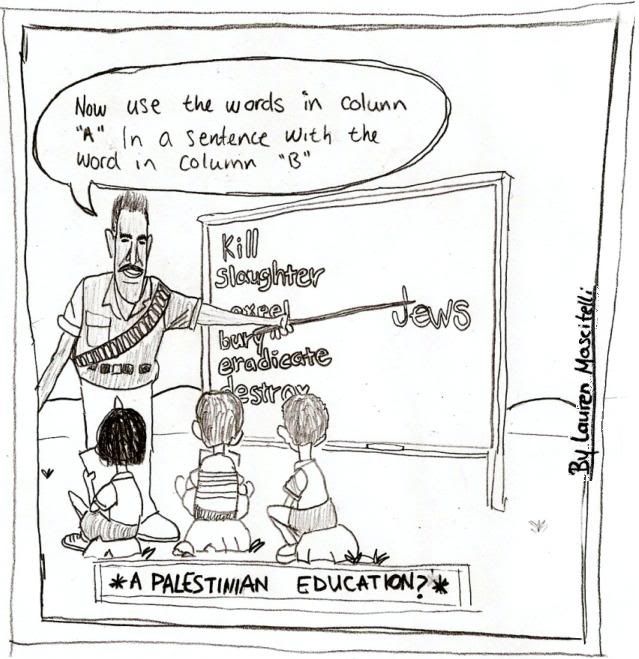 Now use the words in column
"A" In a sentence with the
word in column "B"
Kill
slaughter
expel
bury
eradicate
destroy
Jews
By Lauren Mascitelli
*A PALESTINIAN EDUCATION?*